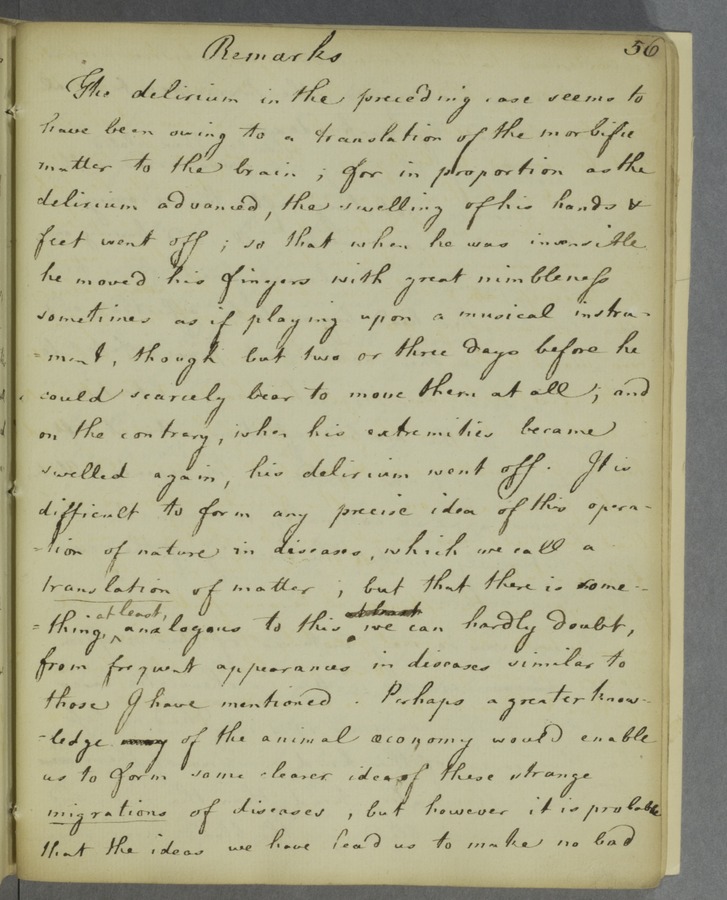 Remarks
56
The delirium in the preceding case seems to
have been owing to a translation of the morbific
matter to the brain ; for in proportion as the
delirium advanced, the swelling of his hands &
feet went off ; so that when he was insensible
he moved his fingers with great nimbleness
sometimes as if playing upon a musical instru-
-ment, though but two or three days before he
could scarcely bear to move them at all ; and
on the contrary, when his extremities became
swelled again, his delirium went off. It is
difficult to form any precise idea of this opera-
-tion of nature in diseases, which we call a
translation of matter ; but that there is some-
=thing, at least, analogous to this we can hardly doubt,
from frequent appearances in diseases similar to
those I have mentioned. Perhaps a greater know-
-ledge of the animal œconomy would enable
us to form some clearer idea of these strange
migrations of diseases, but however it is probable
that the ideas we have lead us to make no bad